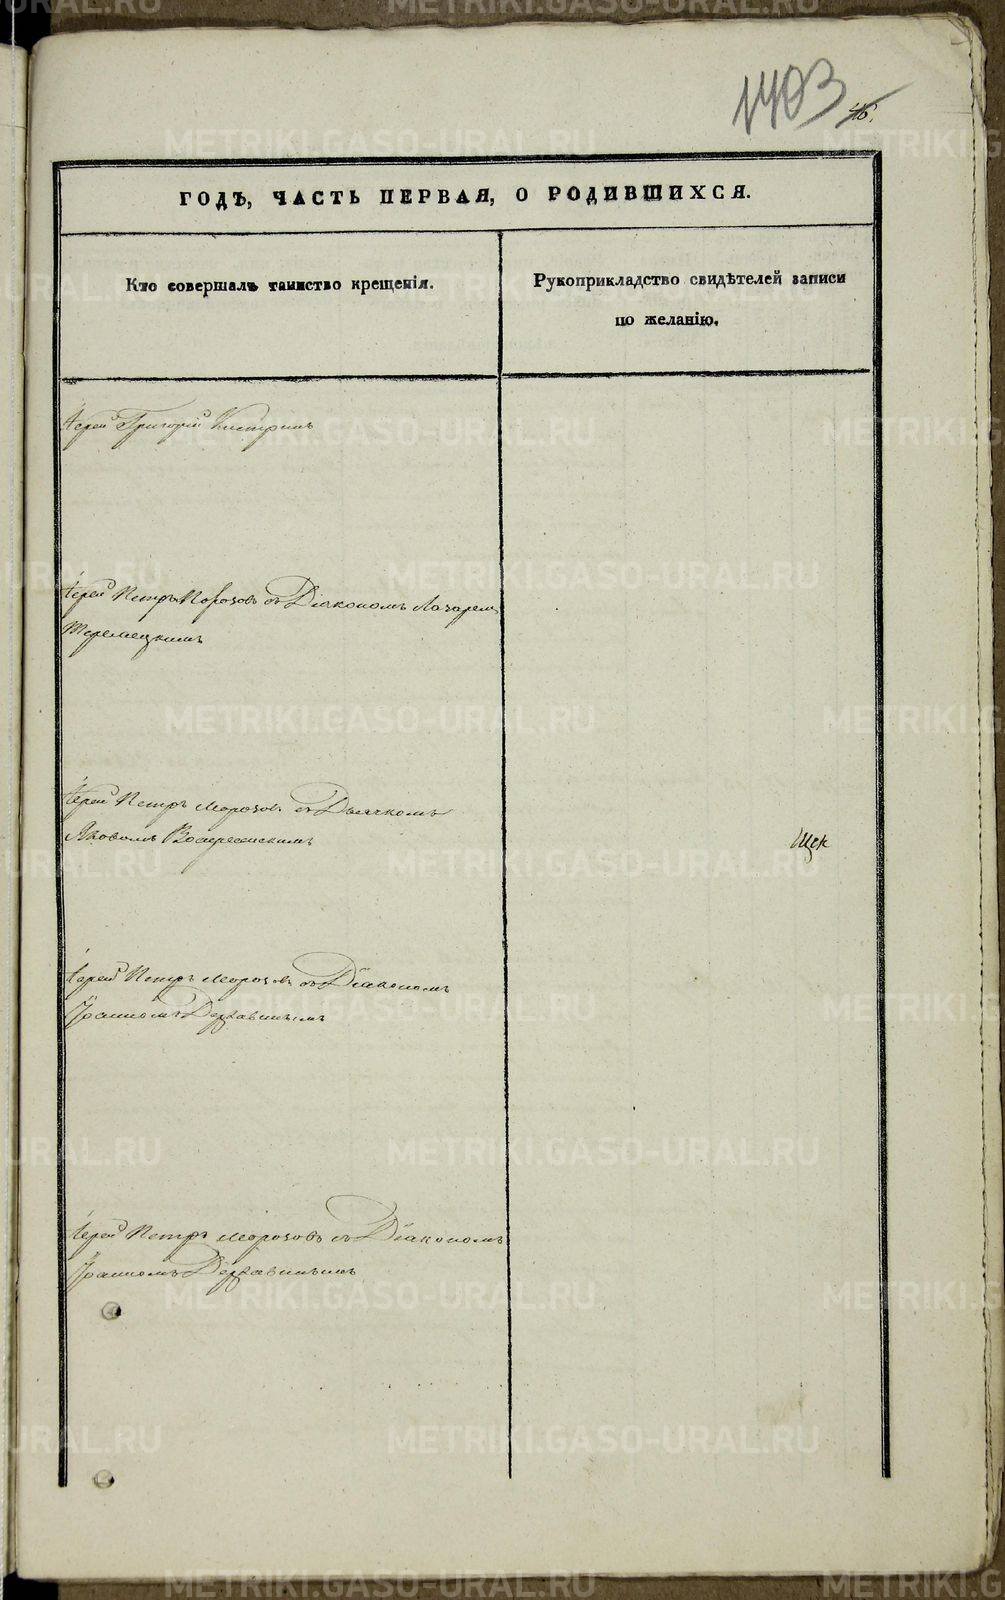 1403
46.
ГОДЪ, ЧАСТЬ ПЕРВАЯ, О РОДИВШИХСЯ.
Кто совершалъ таинство крещенія.
Рукоприкладство свидѣтелей записи
по желанію.
Іерей Григорій
Іерей Петръ Морозовъ съ Діакономъ Лазаремъ
Іерей Петръ Морозовъ съ Дьячкомъ
Яковомъ Воскресенскимъ
Іерей Петръ Морозовъ съ Діакономъ
Іоанномъ Державинымъ
Іерей Петръ Морозовъ съ Діакономъ
Іоанномъ Державинымъ
METRIKI.GASO-URAL.RU